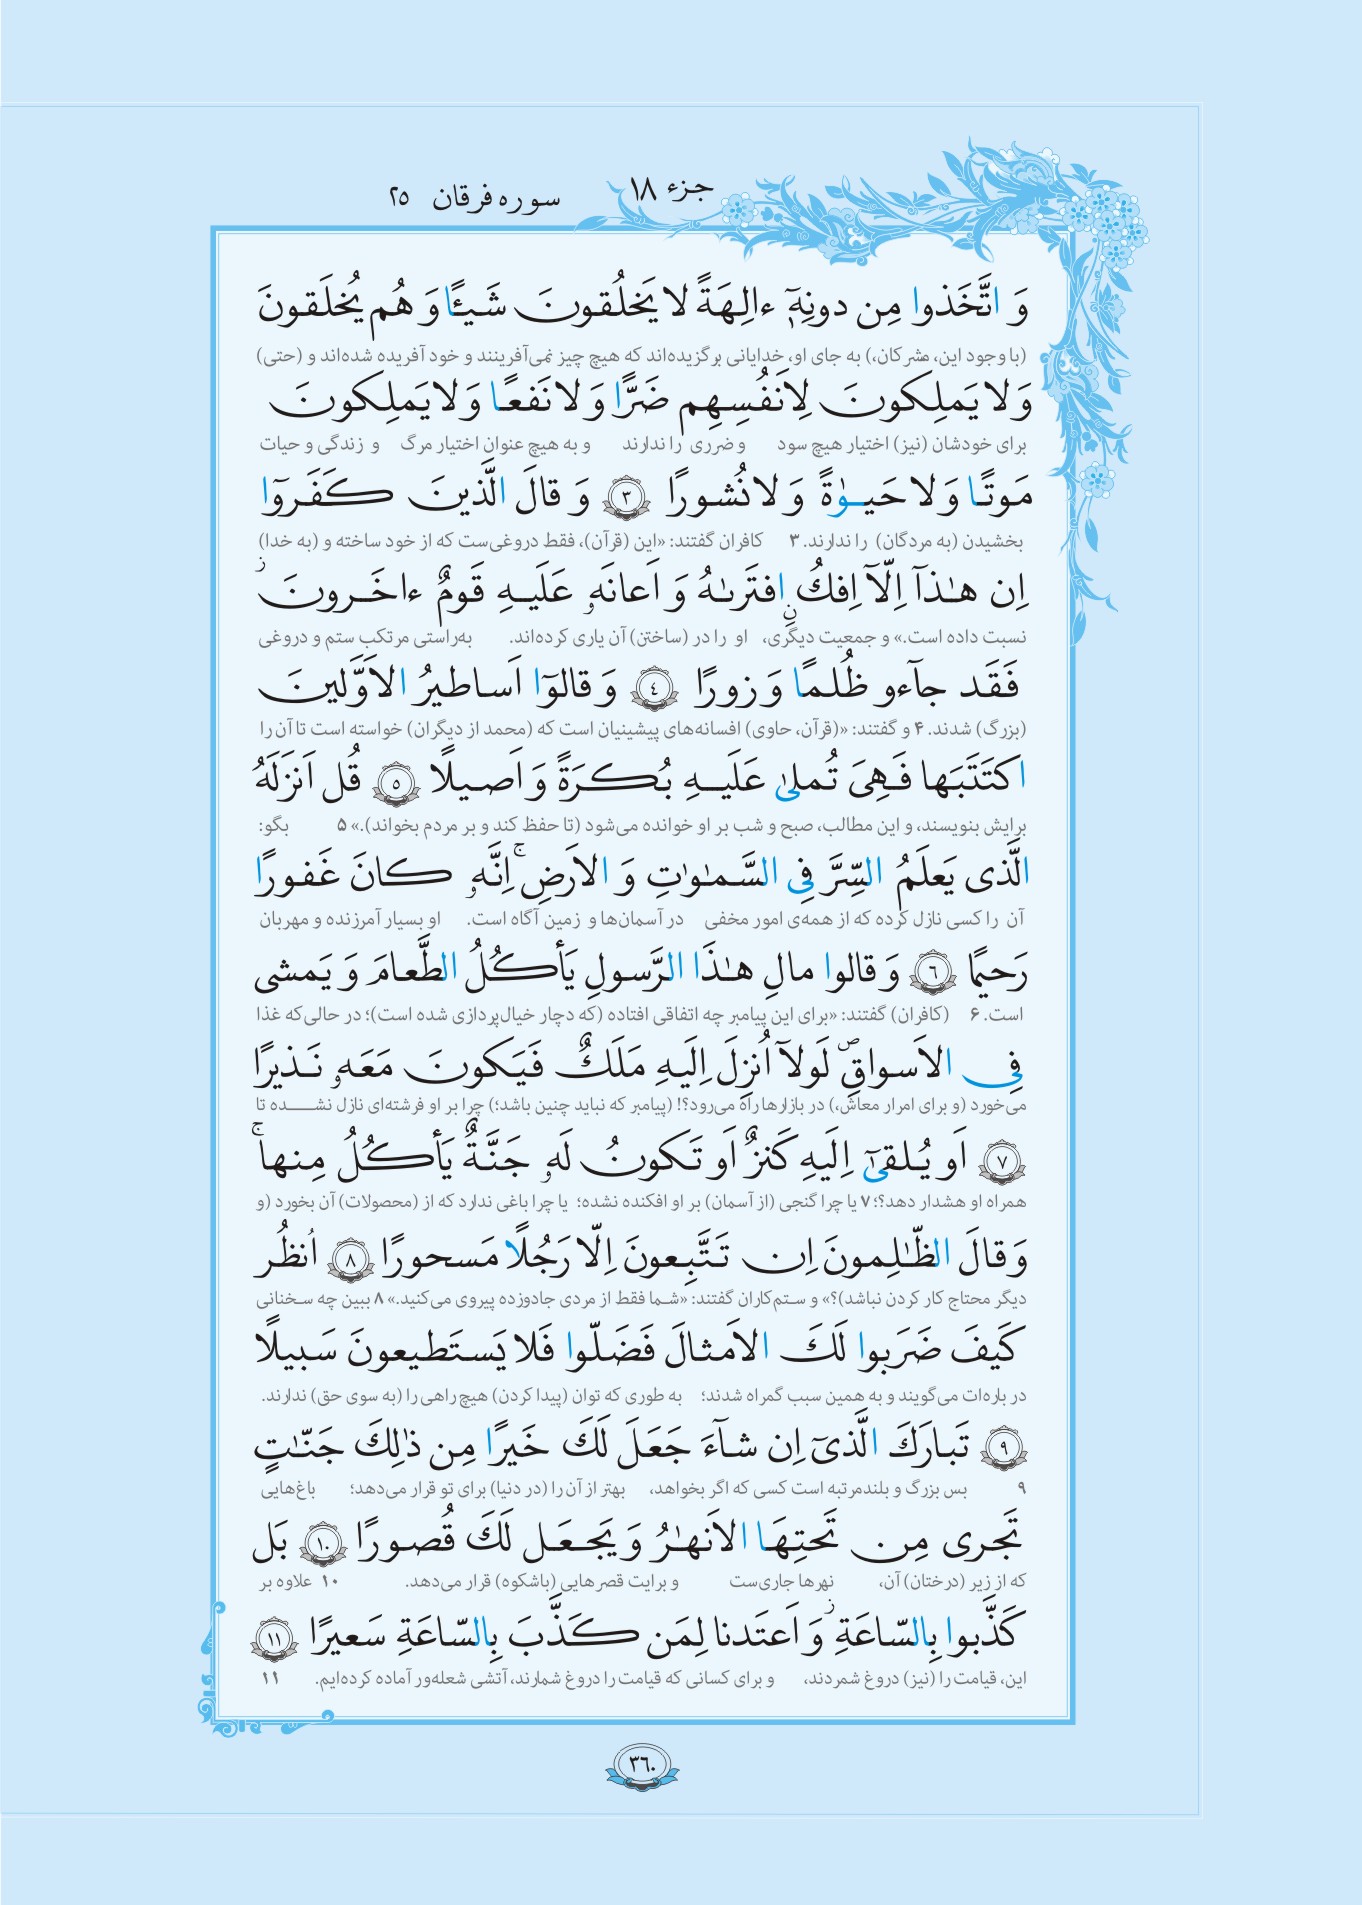 جزء ۱۸
سوره فرقان ۲۵
وَ اتَّخَذوا مِن دونِهٖٓ ءالِهَةً لا يَخلُقونَ شَيـًٔا وَ هُم يُخلَقونَ
(با وجود این، مشرکان،) به جای او، خدایانی برگزیده‌اند که هیچ چیز نمی‌آفرینند و خود آفریده شده‌اند و (حتی)
وَلا يَملِكونَ لِاَنفُسِهِم ضَرًّا وَلا نَفعًا وَلا يَملِكونَ
برای خودشان (نیز) اختیار هیچ سود و ضرری را ندارند و به هیچ عنوان اختیار مرگ و زندگی و حیات
مَوتًا وَلا حَيوٰةً وَلا نُشورًا ۳ وَ قالَ الَّذينَ كَفَروٓا
بخشیدن (به مردگان) را ندارند. ۳ کافران گفتند: «این (قرآن)، فقط دروغی‌ست که از خود ساخته و (به خدا)
اِن هٰذآ اِلّآ اِفكٌ افتَرىٰهُ وَ اَعانَهٗ عَلَيهِ قَومٌ ءاخَرونَ ۖز
نسبت داده است.» و جمعیت دیگری، او را در (ساختن) آن یاری کرده‌اند. به‌راستی مرتکب ستم و دروغی
فَقَد جآءو ظُلمًا وَ زورًا ٤ وَ قالوٓا اَساطيرُ الاَوَّلينَ
(بزرگ) شدند. ۴ و گفتند: «(قرآن، حاوی) افسانه‌های پیشینیان است که (محمد از دیگران) خواسته است تا آن را
اكتَتَبَها فَهِىَ تُملىٰ عَلَيهِ بُكرَةً وَ اَصيلًا ۵ قُل اَنزَلَهُ
برایش بنویسند، و این مطالب، صبح و شب بر او خوانده می‌شود (تا حفظ کند و بر مردم بخواند).» ۵ بگو:
الَّذى يَعلَمُ السِّرَّ فِى السَّمٰوٰتِ وَ الاَرضِ ۚ اِنَّهٗ كانَ غَفورًا
آن را کسی نازل کرده که از همه‌ی امور مخفی در آسمان‌ها و زمین آگاه است. او بسیار آمرزنده و مهربان
رَحيمًا ٦ وَ قالوا مالِ هٰذَا الرَّسولِ يَأكُلُ الطَّعامَ وَ يَمشى
است. ۶ (کافران) گفتند: «برای این پیامبر چه اتفاقی افتاده (که دچار خیال‌پردازی شده است)؛ در حالی‌که غذا
فِى الاَسواقِ ۖ لَولآ اُنزِلَ اِلَيهِ مَلَكٌ فَيَكونَ مَعَهٗ نَذيرًا
می‌خورد (و برای امرار معاش،) در بازارها راه می‌رود؟! (پیامبر که نباید چنین باشد؛) چرا بر او فرشته‌ای نازل نشده تا
۷ اَو يُلقىٰٓ اِلَيهِ كَنزٌ اَو تَكونُ لَهٗ جَنَّةٌ يَأكُلُ مِنها ۚ
همراه او هشدار دهد؟؛ ۷ یا چرا گنجی (از آسمان) بر او افکنده نشده؛ یا چرا باغی ندارد که از (محصولات) آن بخورد (و
وَ قالَ الظّٰلِمونَ اِن تَتَّبِعونَ اِلّا رَجُلًا مَسحورًا ۸ اُنظُر
دیگر محتاج کار کردن نباشد)؟» و ستم‌کاران گفتند: «شما فقط از مردی جادوزده پیروی می‌کنید.» ۸ ببین چه سخنانی
كَيفَ ضَرَبوا لَكَ الاَمثالَ فَضَلّوا فَلا يَستَطيعونَ سَبيلًا
در باره‌ات می‌گویند و به همین سبب گمراه شدند؛ به طوری که توان (پیدا کردن) هیچ راهی را (به سوی حق) ندارند.
۹ تَبارَكَ الَّذىٓ اِن شآءَ جَعَلَ لَكَ خَيرًا مِن ذٰلِكَ جَنّٰتٍ
۹ بس بزرگ و بلندمرتبه است کسی که اگر بخواهد، بهتر از آن را (در دنیا) برای تو قرار می‌دهد؛ باغ‌هایی
تَجرى مِن تَحتِهَا الاَنهٰرُ وَ يَجعَل لَكَ قُصورًا ۱۰ بَل
که از زیر (درختان) آن، نهرها جاری‌ست و برایت قصرهایی (باشکوه) قرار می‌دهد. ۱۰ علاوه بر
كَذَّبوا بِالسّاعَةِ ۖز وَ اَعتَدنا لِمَن كَذَّبَ بِالسّاعَةِ سَعيرًا ۱۱
این، قیامت را (نیز) دروغ شمردند، و برای کسانی که قیامت را دروغ شمارند، آتشی شعله‌ور آماده کرده‌ایم. ۱۱
۳٦۰